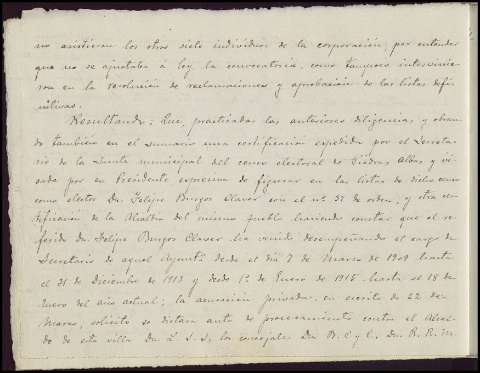 no asistieron los otros siete individuos de la corporación, por entender
que no se ajustaba á ley la convocatoria, como tampoco intervinie-
ron en la resolución de reclamaciones y aprobación de las listas defi-
nitivas.
Resultando: Que, practicadas las anteriores diligencias y obran-
do también en el sumario una certificación expedida por el Secreta-
rio de la Junta municipal del censo electoral de Piedras Albas, y vi-
sada por su Presidente expresiva de figurar en las listas de dicho censo
como elector Dn. Felipe Burgos Claver con el nº 37 de orden, y otra cer-
tificación de la Alcaldía del mismo pueblo haciendo constar que el re-
ferido Dn. Felipe Burgos Claver ha venido desempeñando el cargo de
Secretario de aquel Ayuntº desde el dia 7 de Marzo de 1909 hasta
el 31 de Diciembre de 1913 y desde 1º de Enero de 1915 hasta el 18 de
Enero del año actual; la acusación privada en escrito de 22 de
Marzo, solicitó se dictara auto de procesamiento contra el Alcal-
de de esta villa Dn. L. S. S., los concejales Dn. B. C. y C., Dn. R. R. M.